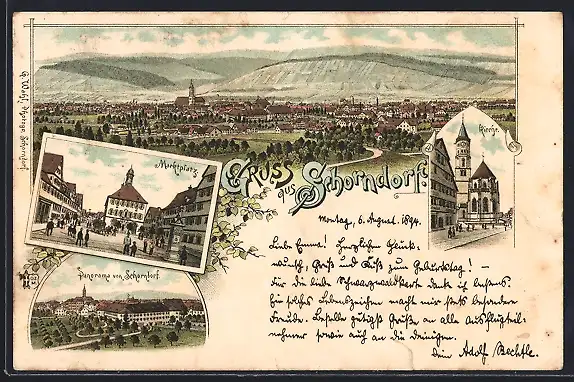 Gruss aus Schorndorf.
Kirche.
Marktplatz
Panorama von Schorndorf.
Montag, 6. August. 1894.
Liebe Emma! Herzlichen Glück-
wunsch, Gruß und Kuß zum Geburtstag! –
Für die liebe Schwarzwaldkarte dank ich bestens.
Ein solches Lebenszeichen macht mir stets besondere
Freude. Bestelle gütigst Grüße an alle Ausflugteil-
nehmer sowie auch an die Deinigen.
Dein Adolf Bechtle.